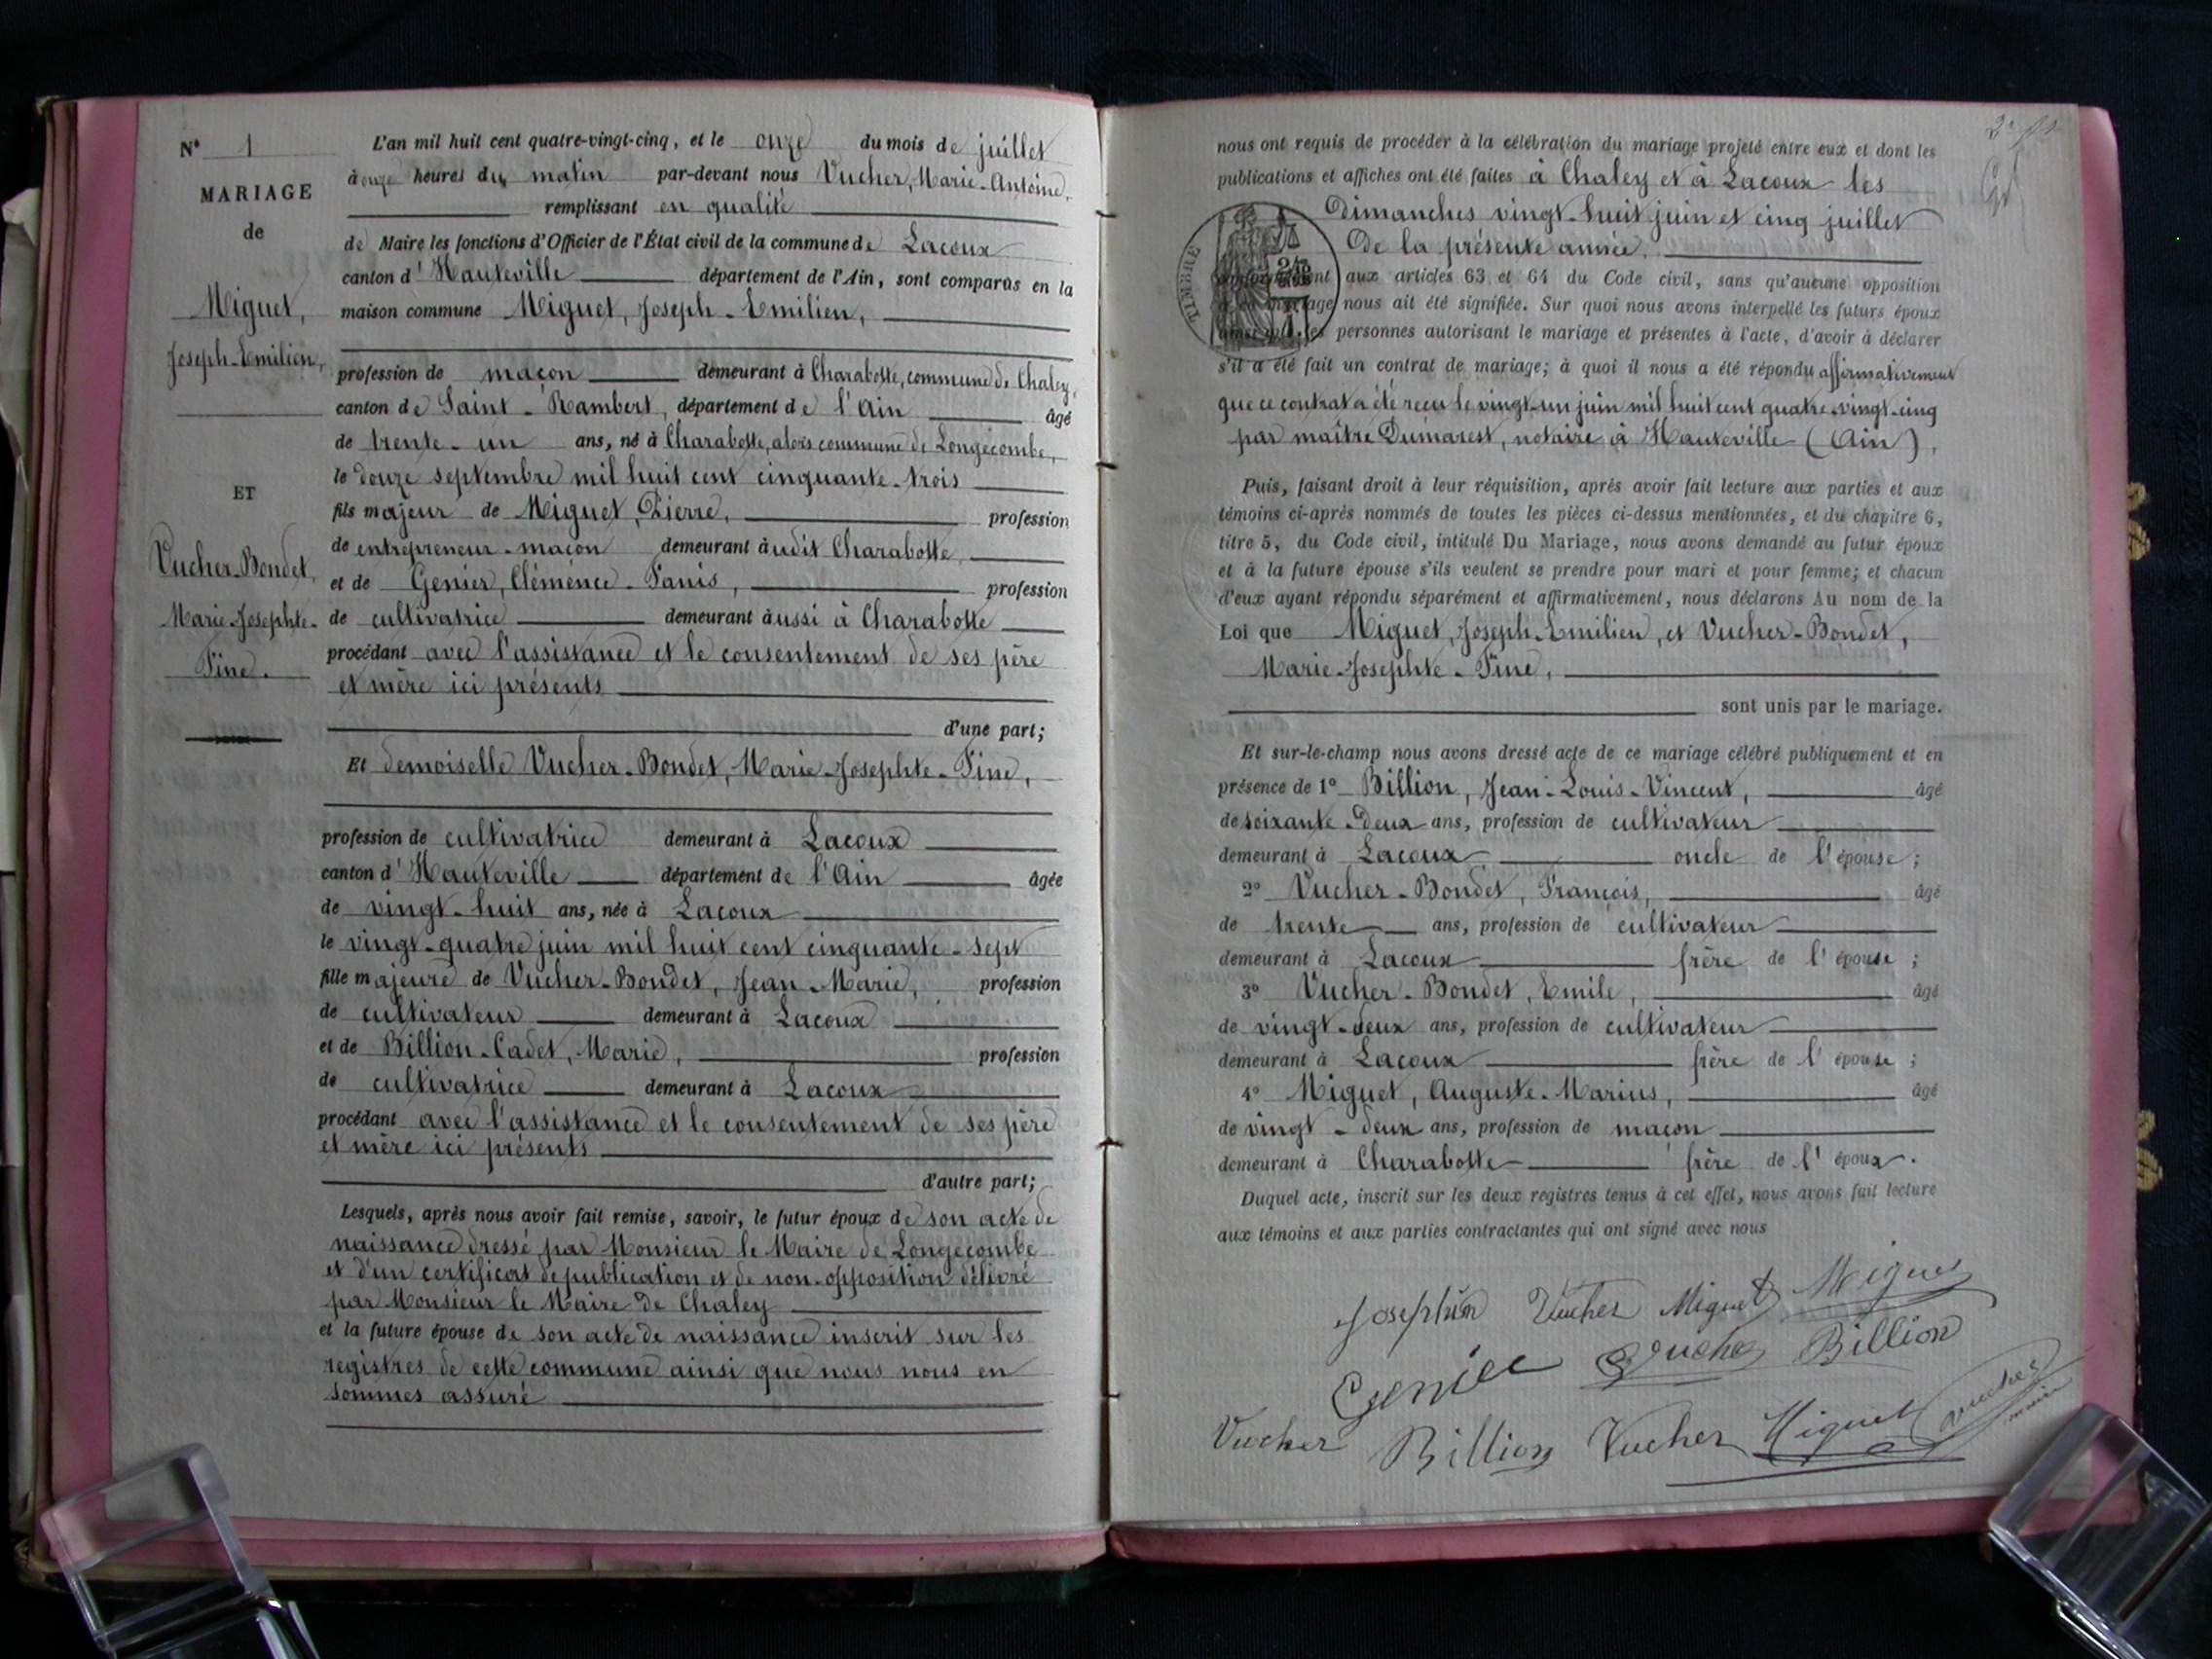 N° 1
MARIAGE
de
Miguet,
Joseph-Emilien,
ET
Vucher-Bondet,
Marie-Josephte-
Fine.
L'an mil huit cent quatre-vingt-cinq, et le onze du mois de juillet
à onze heures du matin par-devant nous Vucher, Marie-Antoine,
remplissant en qualité
de Maire les fonctions d'Officier de l'État civil de la commune de Lacoux
canton d'Hauteville département de l'Ain, sont comparus en la
maison commune Miguet, Joseph-Emilien,
profession de maçon demeurant à Charabotte, commune de Chaley,
canton de Saint-Rambert, département de l'Ain âgé
de trente-un ans, né à Charabotte, alors commune de Longecombe,
le douze septembre mil huit cent cinquante-trois
fils majeur de Miguet, Pierre, profession
de entrepreneur-maçon demeurant audit Charabotte,
et de Genier, Clémence-Fanis, profession
de cultivatrice demeurant aussi à Charabotte
procédant avec l'assistance et le consentement de ses père
et mère ici présents
d'une part;
Et demoiselle Vucher-Bondet, Marie-Josephte-Fine,
profession de cultivatrice demeurant à Lacoux
canton d'Hauteville département de l'Ain âgée
de vingt-huit ans, née à Lacoux
le vingt-quatre juin mil huit cent cinquante-sept
fille majeure de Vucher-Bondet, Jean-Marie, profession
de cultivateur demeurant à Lacoux
et de Billion-Cadet, Marie, profession
de cultivatrice demeurant à Lacoux
procédant avec l'assistance et le consentement de ses père
et mère ici présents
d'autre part;
Lesquels, après nous avoir fait remise, savoir, le futur époux de son acte de
naissance dressé par Monsieur le Maire de Longecombe
et d'un certificat de publication et de non-opposition délivré
par Monsieur le Maire de Chaley
et la future épouse de son acte de naissance inscrit sur les
registres de cette commune ainsi que nous nous en
sommes assuré
nous ont requis de procéder à la célébration du mariage projeté entre eux et dont les
publications et affiches ont été faites à Chaley et à Lacoux les
Dimanches vingt-huit juin et cinq juillet
De la présente année.
TIMBRE
aux articles 63 et 64 du Code civil, sans qu'aucune opposition
nous ait été signifiée. Sur quoi nous avons interpellé les futurs époux
personnes autorisant le mariage et présentes à l'acte, d'avoir à déclarer
s'il a été fait un contrat de mariage; à quoi il nous a été répondu affirmativement
que ce contrat a été reçu le vingt-un juin mil huit cent quatre-vingt-cinq
par maître Dumarest, notaire à Hauteville (Ain),
Puis, faisant droit à leur réquisition, après avoir fait lecture aux parties et aux
témoins ci-après nommés de toutes les pièces ci-dessus mentionnées, et du chapitre 6,
titre 5, du Code civil, intitulé Du Mariage, nous avons demandé au futur époux
et à la future épouse s'ils veulent se prendre pour mari et pour femme; et chacun
d'eux ayant répondu séparément et affirmativement, nous déclarons Au nom de la
Loi que Miguet, Joseph-Emilien, et Vucher-Bondet,
Marie-Josephte-Fine,
sont unis par le mariage.
Et sur-le-champ nous avons dressé acte de ce mariage célébré publiquement et en
présence de 1° Billion, Jean-Louis-Vincent, âgé
de soixante-deux ans, profession de cultivateur
demeurant à Lacoux oncle de l'épouse;
2° Vucher-Bondet, François, âgé
de trente ans, profession de cultivateur
demeurant à Lacoux frère de l'épouse;
3° Vucher-Bondet, Emile, âgé
de vingt-deux ans, profession de cultivateur
demeurant à Lacoux frère de l'épouse;
4° Miguet, Auguste-Marius, âgé
de vingt-deux ans, profession de maçon
demeurant à Charabotte frère de l'époux.
Duquel acte, inscrit sur les deux registres tenus à cet effet, nous avons fait lecture
aux témoins et aux parties contractantes qui ont signé avec nous
Josephin Vucher Miguet Miguet
Genier Vucher Billion
Vucher Billion Vucher Miguet Vucher
maire